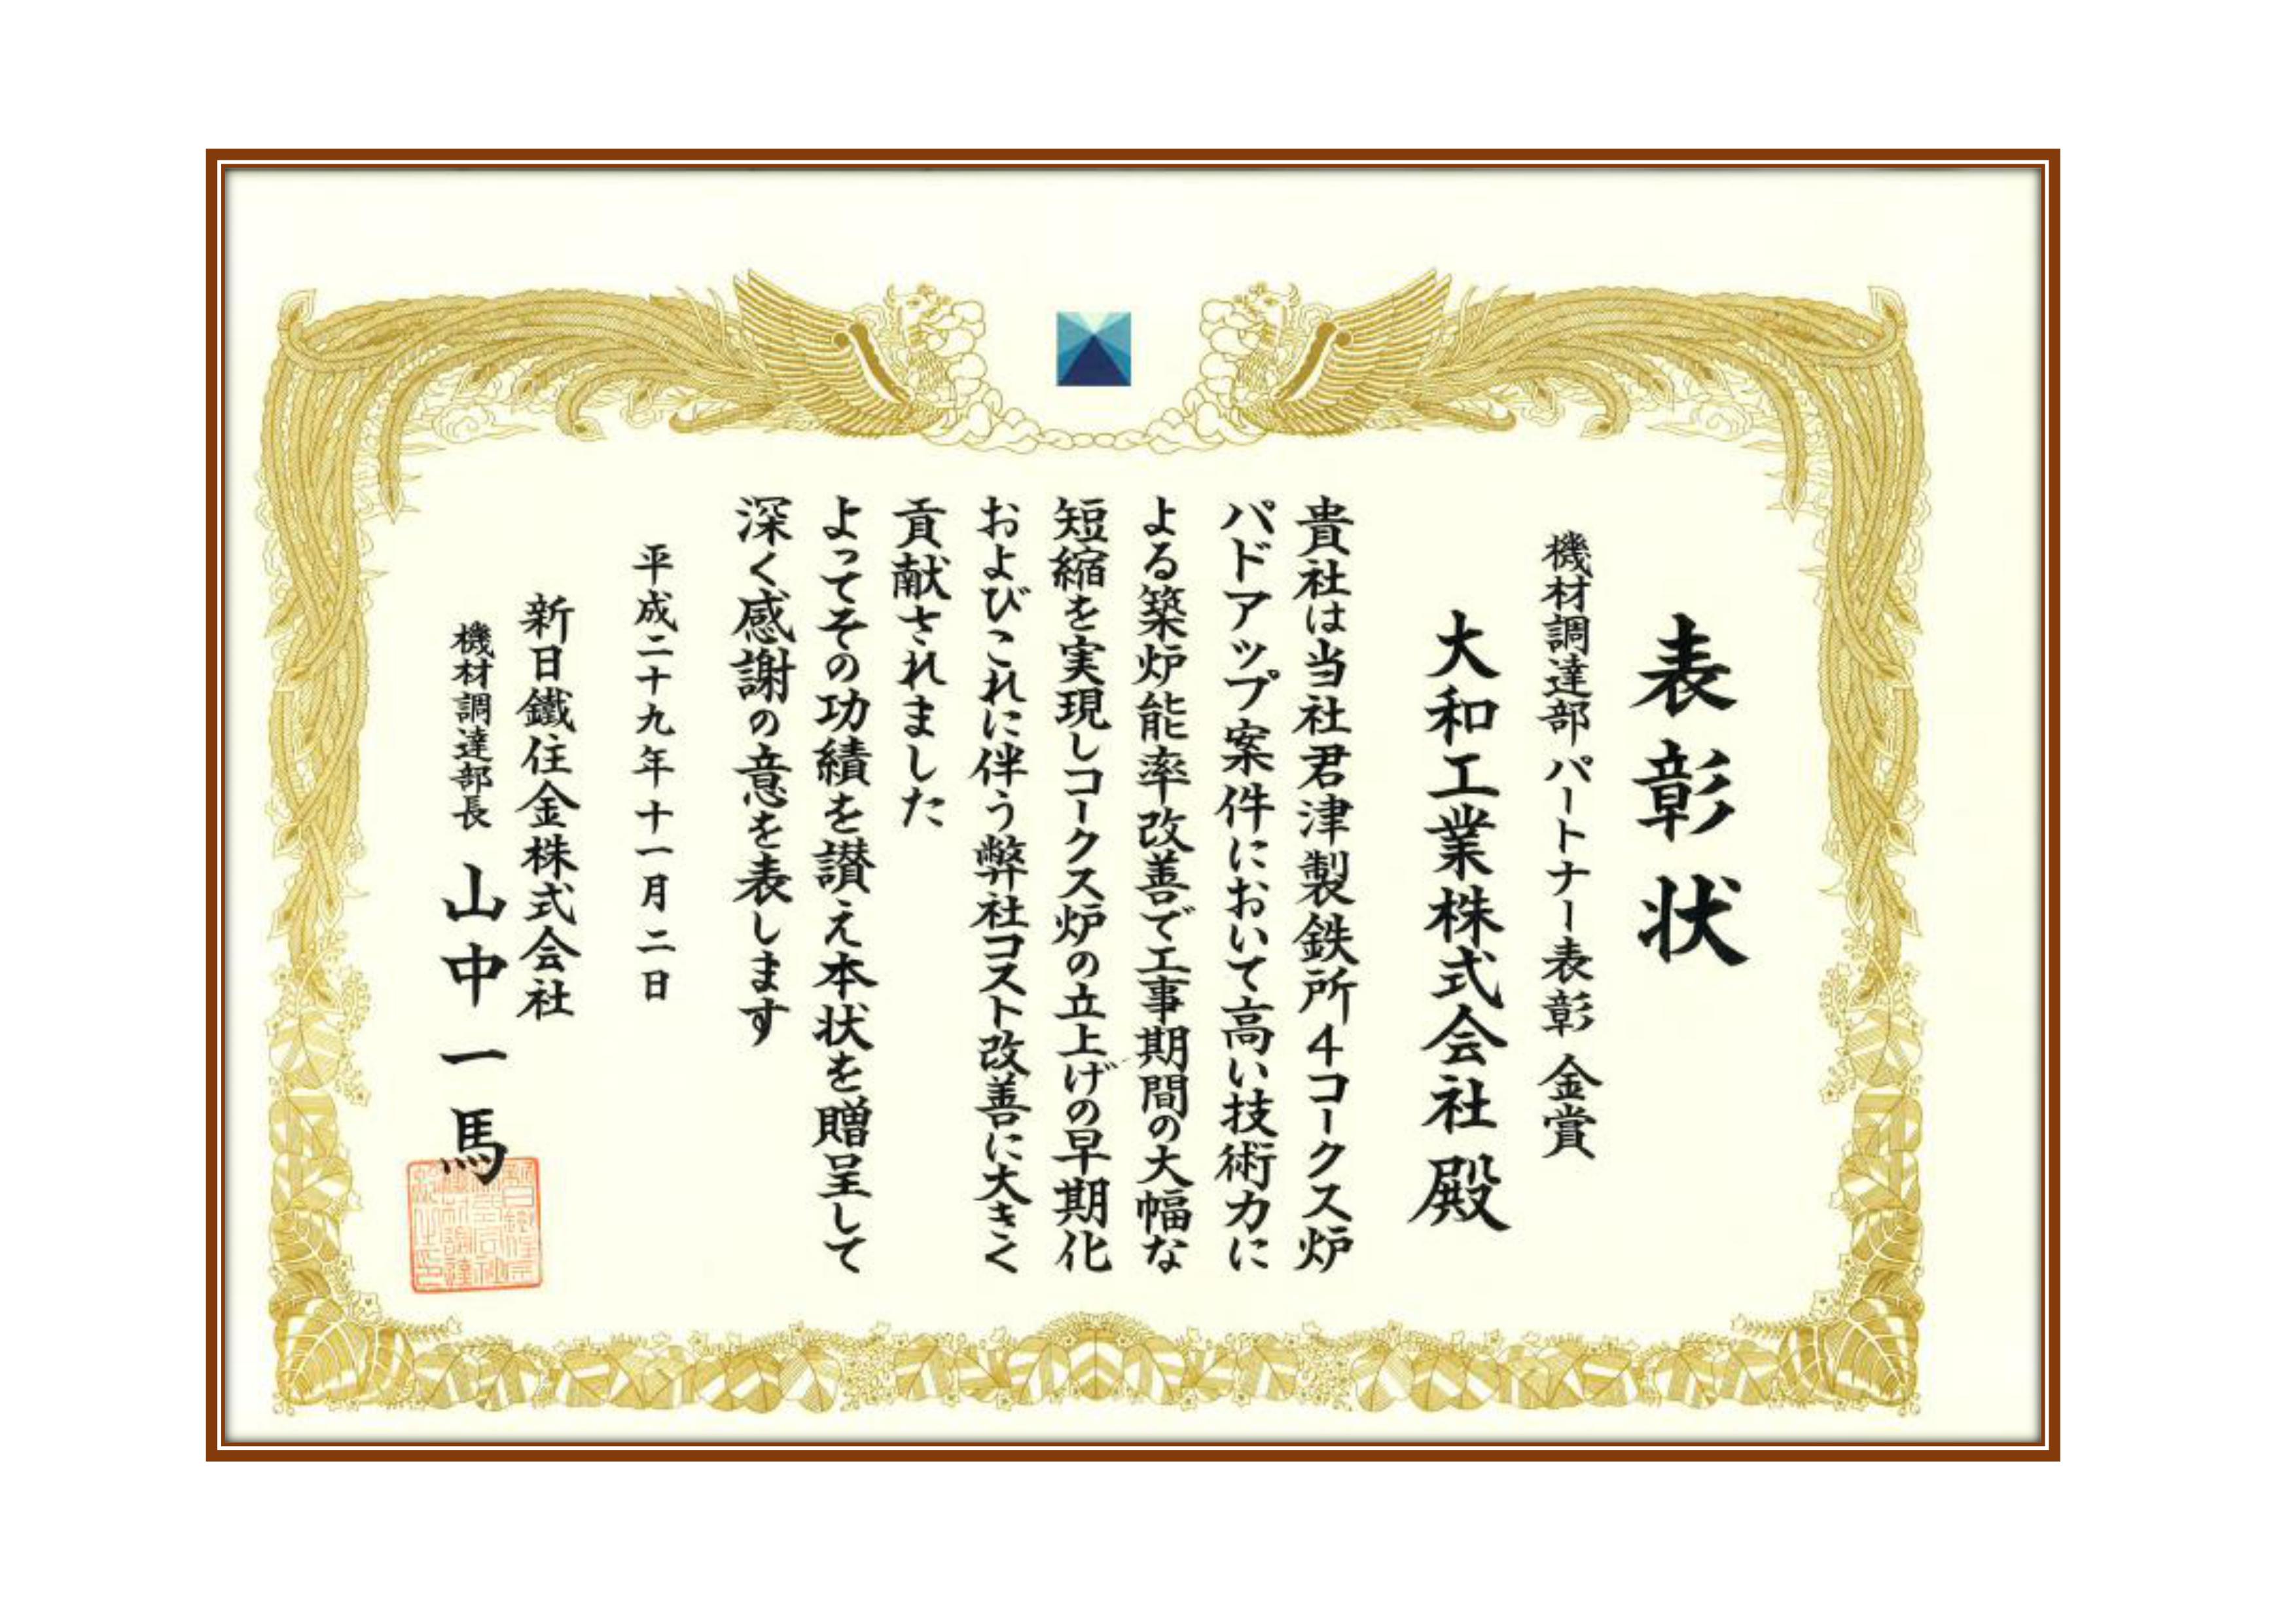 表彰状
機材調達部パートナー表彰 金賞
大和工業株式会社 殿
貴社は当社君津製鉄所4コークス炉
パドアップ案件において高い技術力に
よる築炉能率改善で工事期間の大幅な
短縮を実現しコークス炉の立上げの早期化
およびこれに伴う弊社コスト改善に大きく
貢献されました
よってその功績を讃え本状を贈呈して
深く感謝の意を表します
平成二十九年十一月二日
新日鐵住金株式会社
機材調達部長 山中一馬